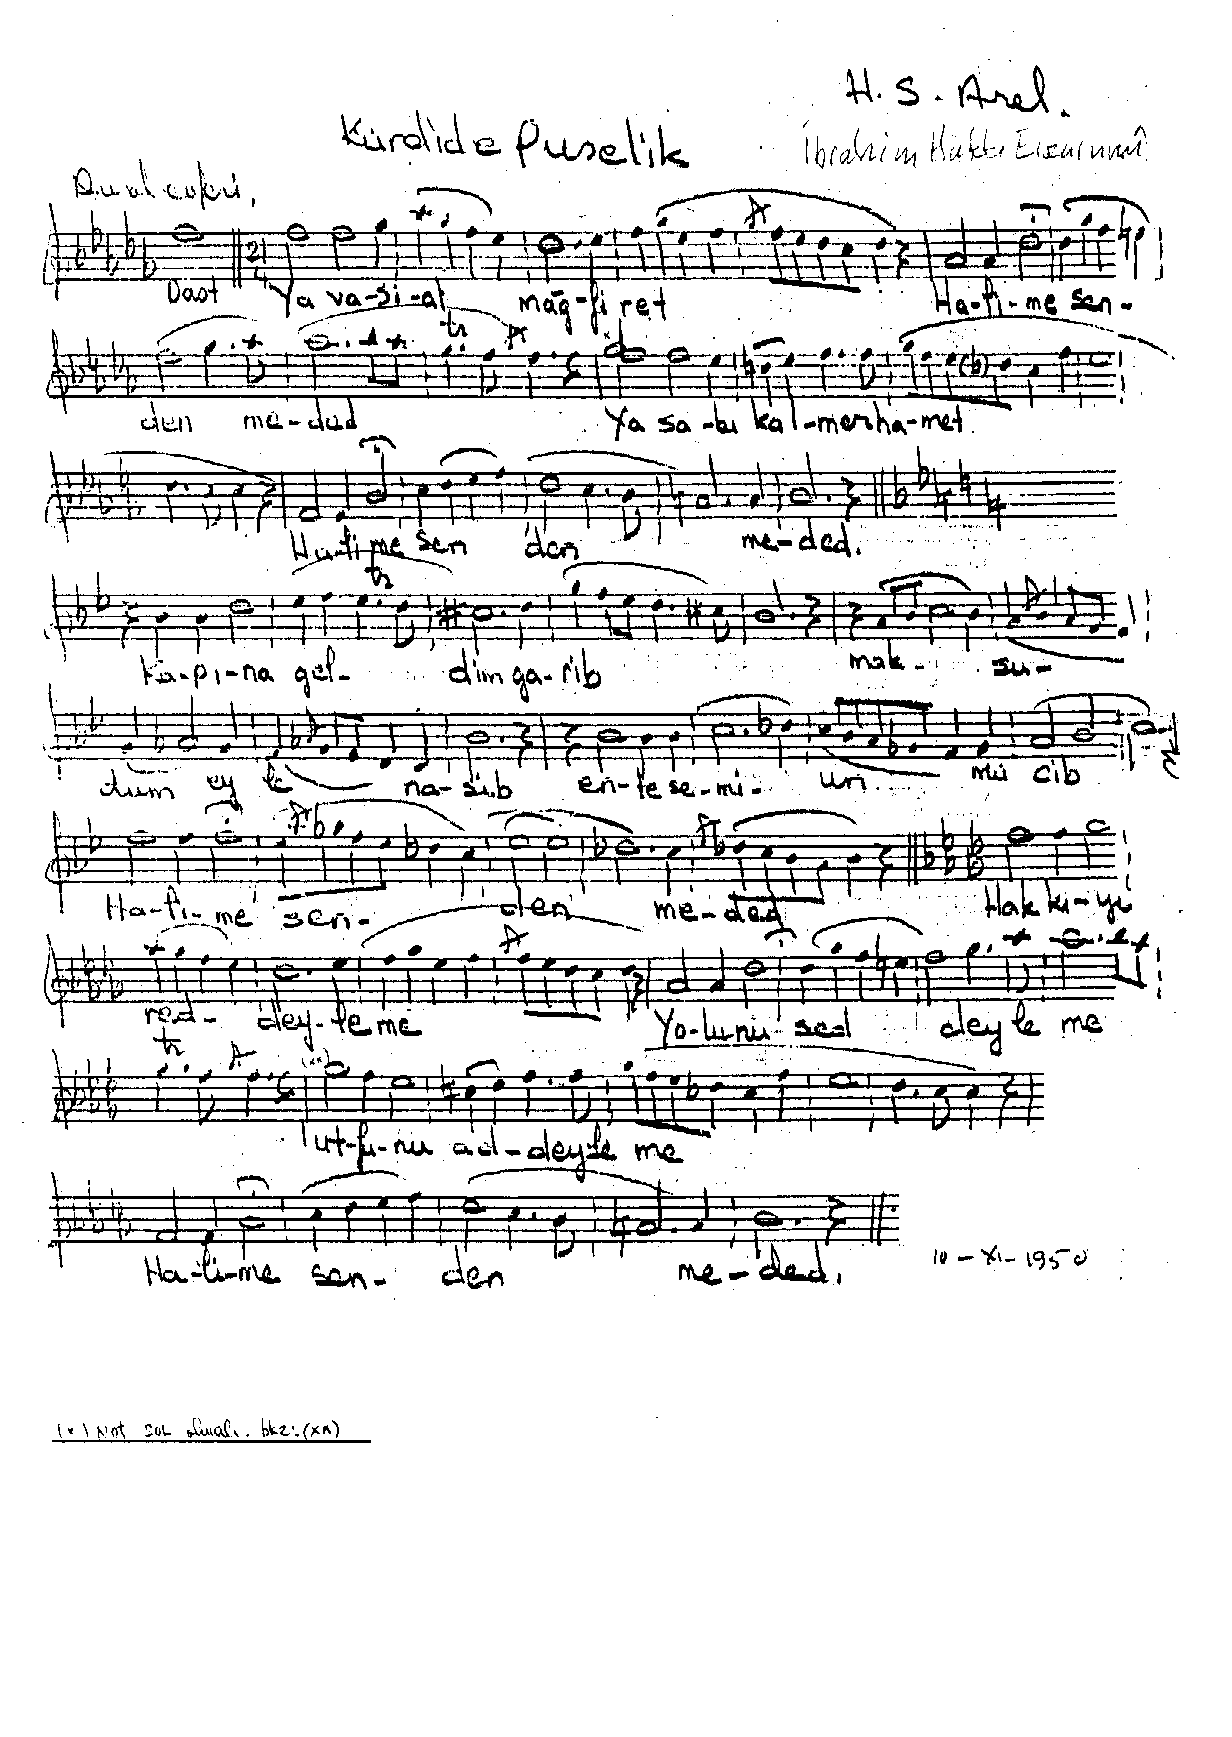 H. S. Arel.
Kürdide Puselik
İbrahim Hakkı Erzurumî
Dost Ya va-si-al mağ-fi ret Ha-fi-me sen-
den me-ded Ya sa-bı kal-merha-met
Ha-li me sen den me-ded.
Ka-pı-na gel- dim ga-rib mak- su-
dum ey le na-sib en-te se-mi- un mü cib
Ha-li-me sen- den me-ded Hak kı-yi
red- dey-le me Yo-lu-nu sed deyle me
lut-fu-nu ad-deyle me
Ha-li-me sen- den me-ded.
10-XI-1950
(x) Not SOL olmalı. bkz:(xx)